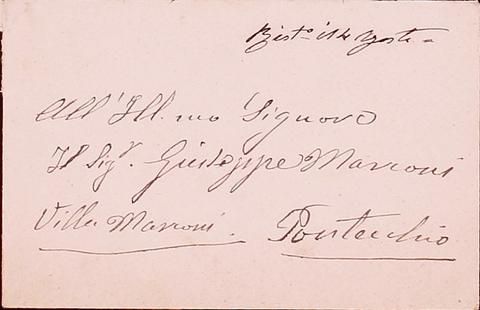 All'Ill.mo Signore
Il Sigr. Giuseppe Marconi
Villa Marconi. Pontecchio